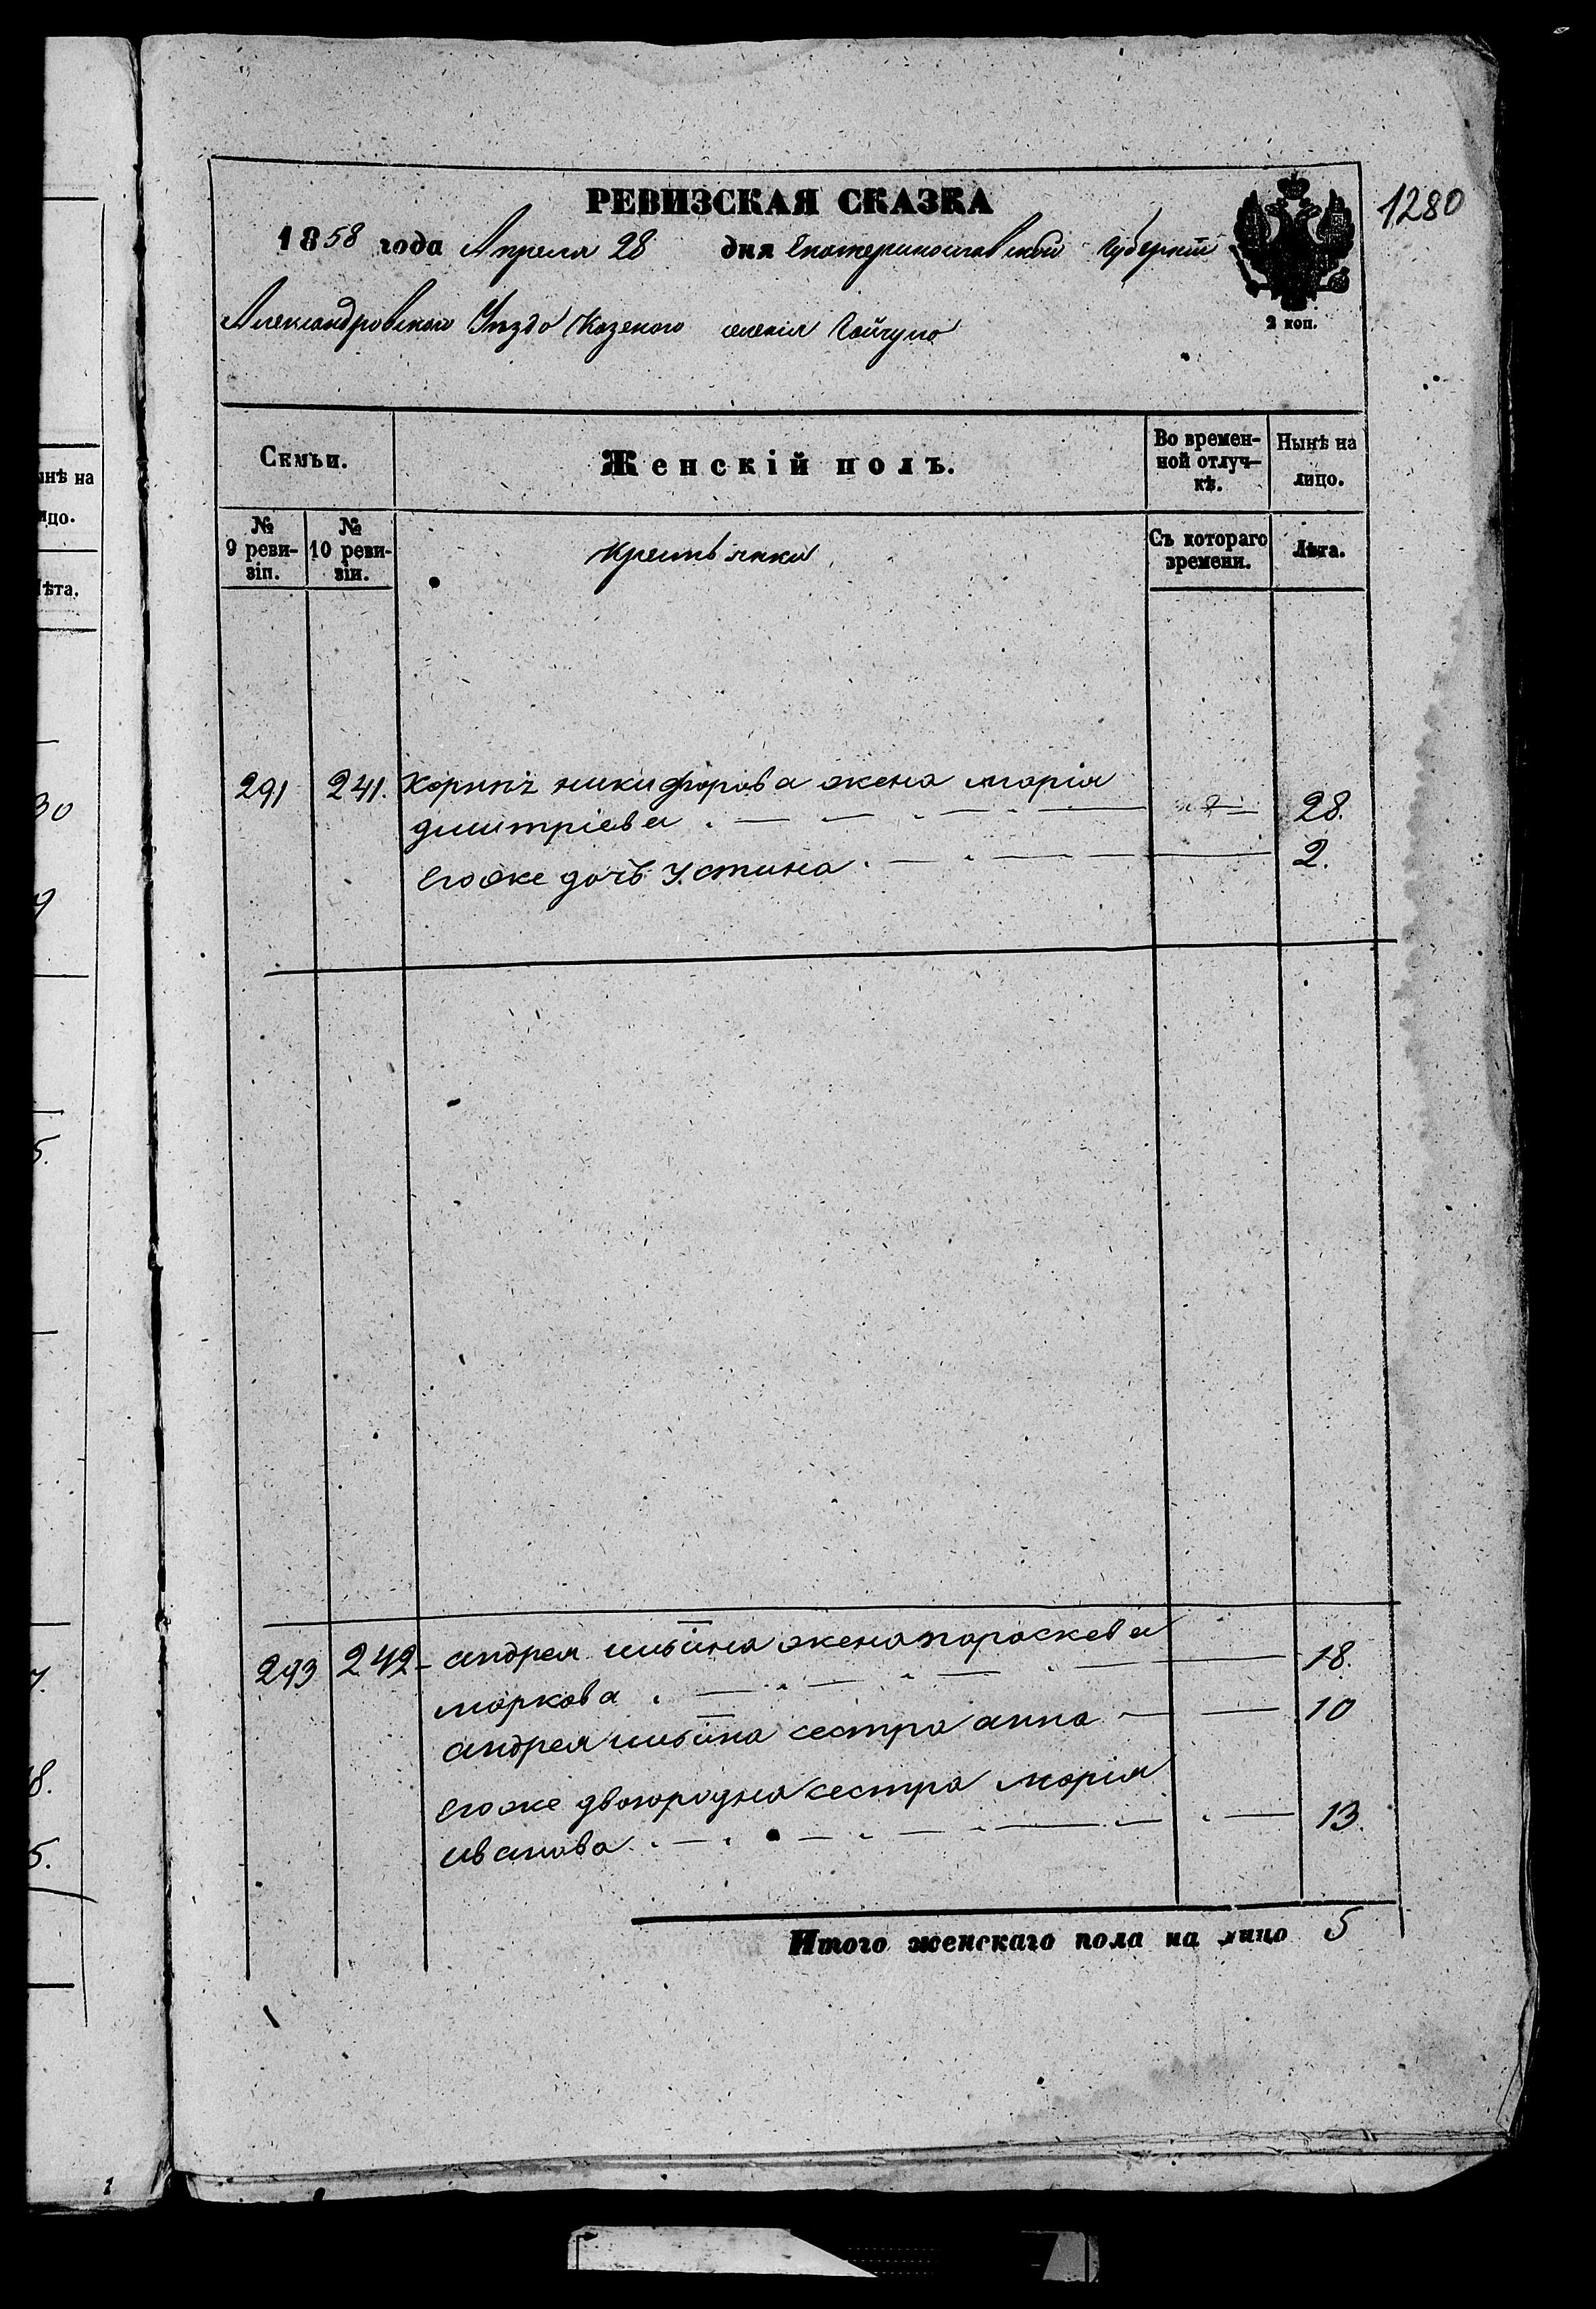 РЕВИЗСКАЯ СКАЗКА
1280
1858 года Апреля 28 дня Екатеринославской Губерніи
2 коп.
Александровскаго Уѣзда Казенаго селенія Гайчула
Скмьи.
Женскій полъ.
Во времен-
ной отлуч-
кѣ.
Нынѣ на
лицо.
№
9 реви-
зіп.
№
10 реви-
зіи.
Крестьянки
Съ котораго
времени.
Лѣта.
291 241. никифорова жена марія
дмитріева 28.
Егоже дочь Устина 2.
293 242 андрея ильіина жена пораскева
маркова 18.
андрея ильіина сестра анна 10
Егоже двоюродна сестра марія
иванова 13.
Итого женскаго пола на лицо 5
нѣ на
цо.
ѣта.
30
9
5.
7.
8.
5.